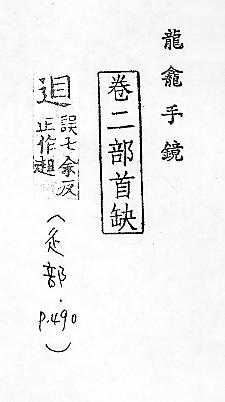 龍龕手鏡
卷二部首缺
誤七余反
正作趄
(辵部. P.490)